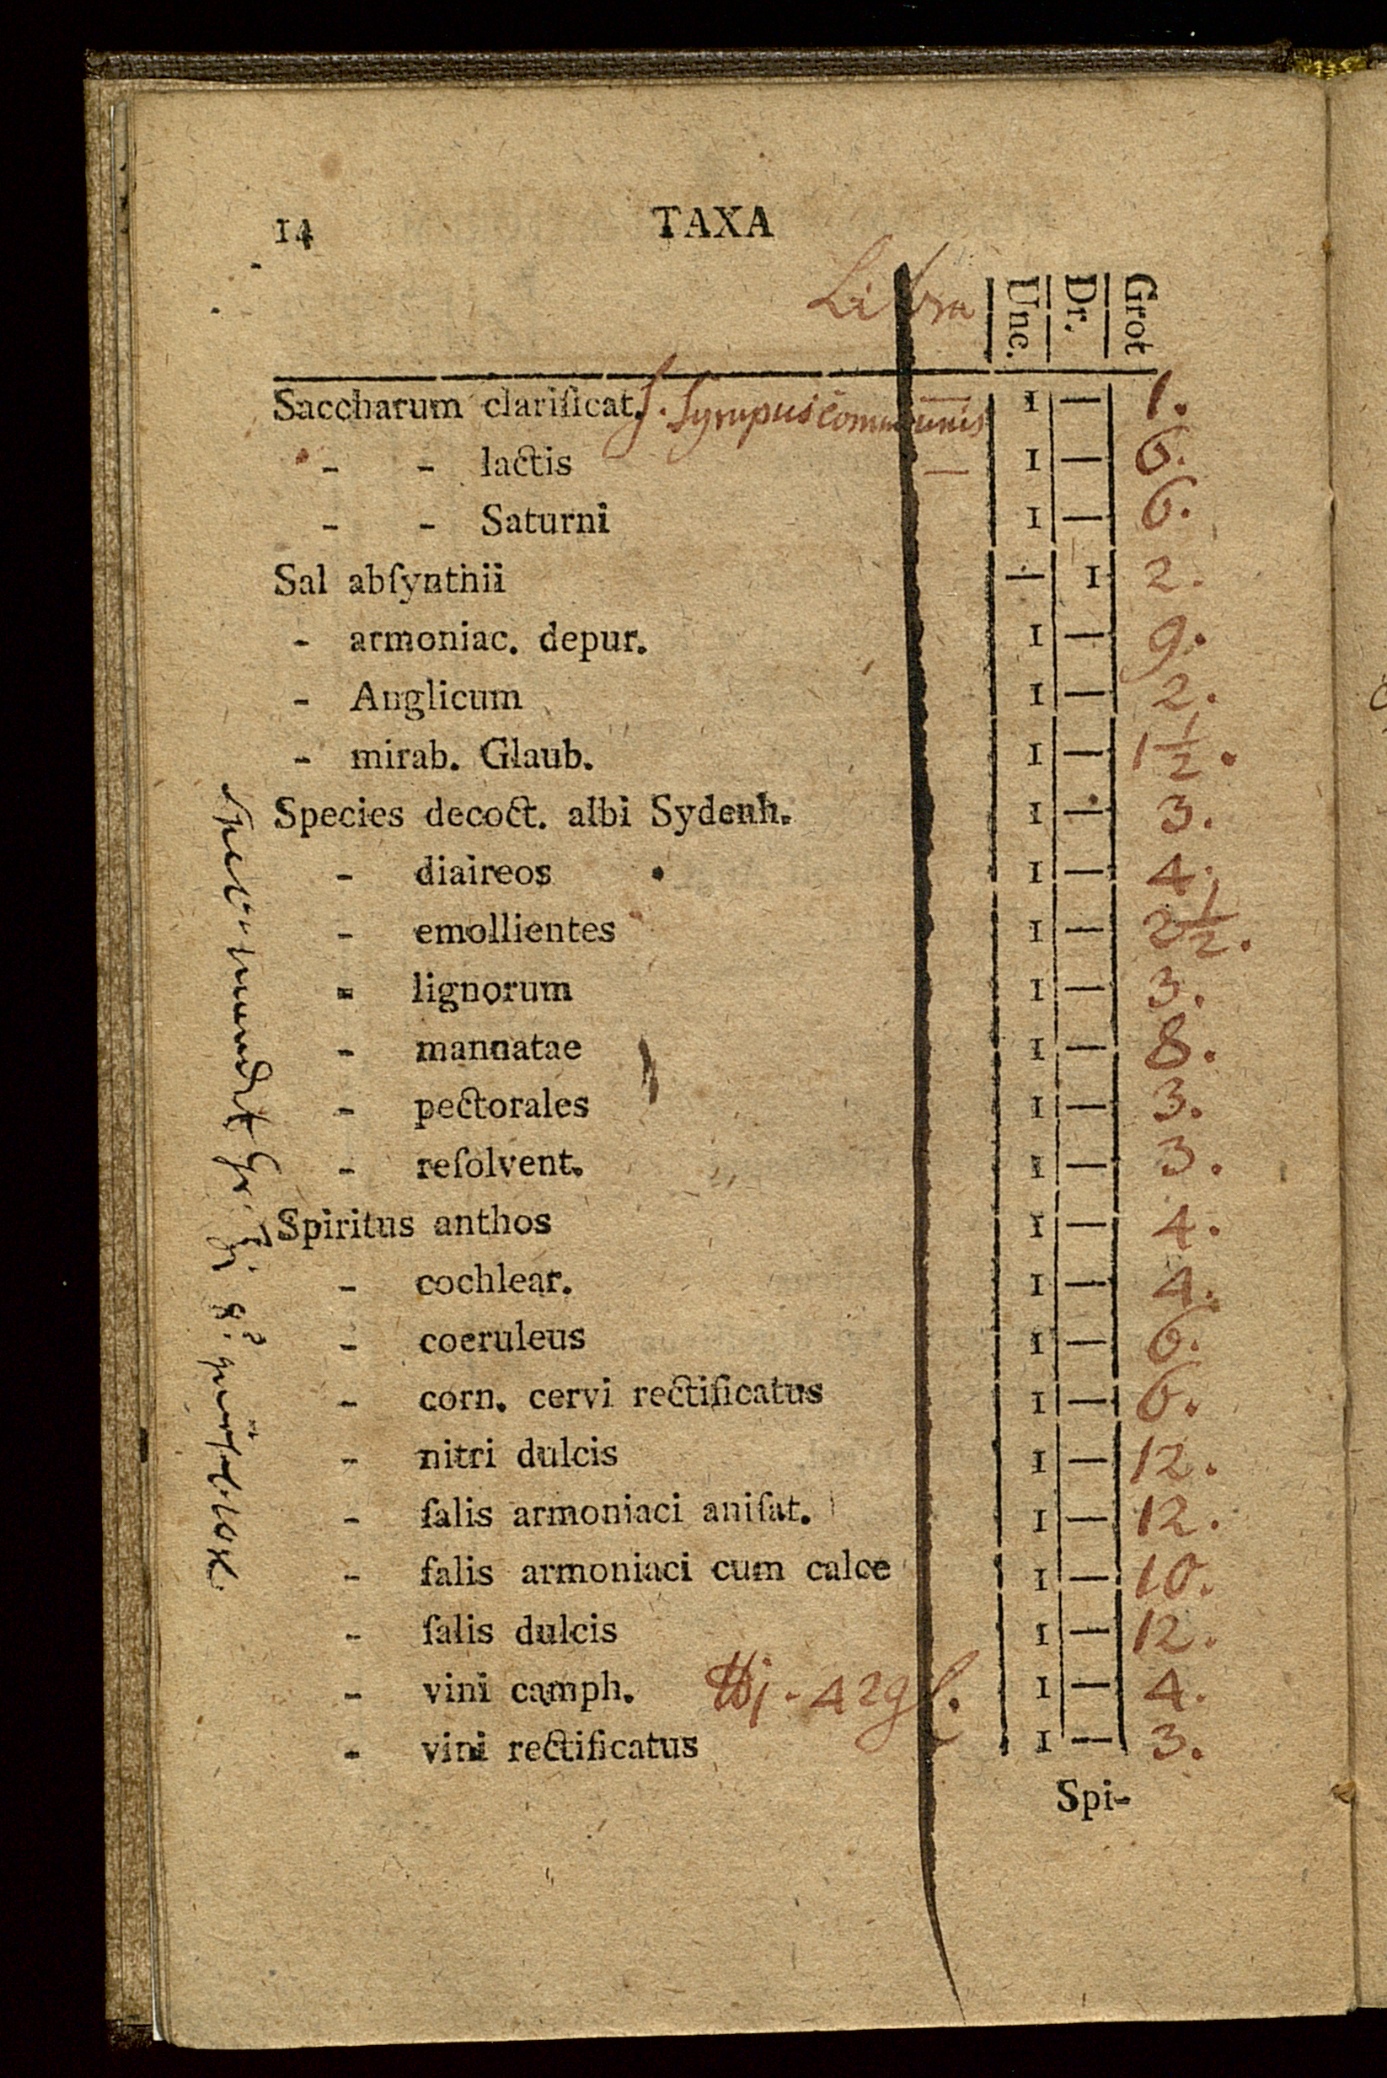 14 TAXA
Libra Unc. Dr. Grot
Saccharum clarificat. ſ. Syrupus com̄unis 1 — 1.
- - lactis — 1 — 6.
- - Saturni 1 — 6.
Sal abſynthii — 1 2.
- armoniac. depur. 1 — 9.
- Anglicum 1 — 2.
- mirab. Glaub. 1 — 1 1/2.
Species decoct. albi Sydenh. 1 — 3.
- diaireos 1 — 4.
- emollientes 1 — 2 1/2.
- lignorum 1 — 3.
- mannatae 1 — 8.
- pectorales 1 — 3.
- reſolvent. 1 — 3.
Spiritus anthos 1 — 4.
- cochlear. 1 — 4.
- coeruleus 1 — 6.
- corn. cervi rectificatus 1 — 6.
- nitri dulcis 1 — 12.
- ſalis armoniaci aniſat. 1 — 12.
- ſalis armoniaci cum calce 1 — 10.
- ſalis dulcis 1 — 12.
- vini camph. ℔j - 42 1 — 4.
- vini rectificatus 1 — 3.
Spi-